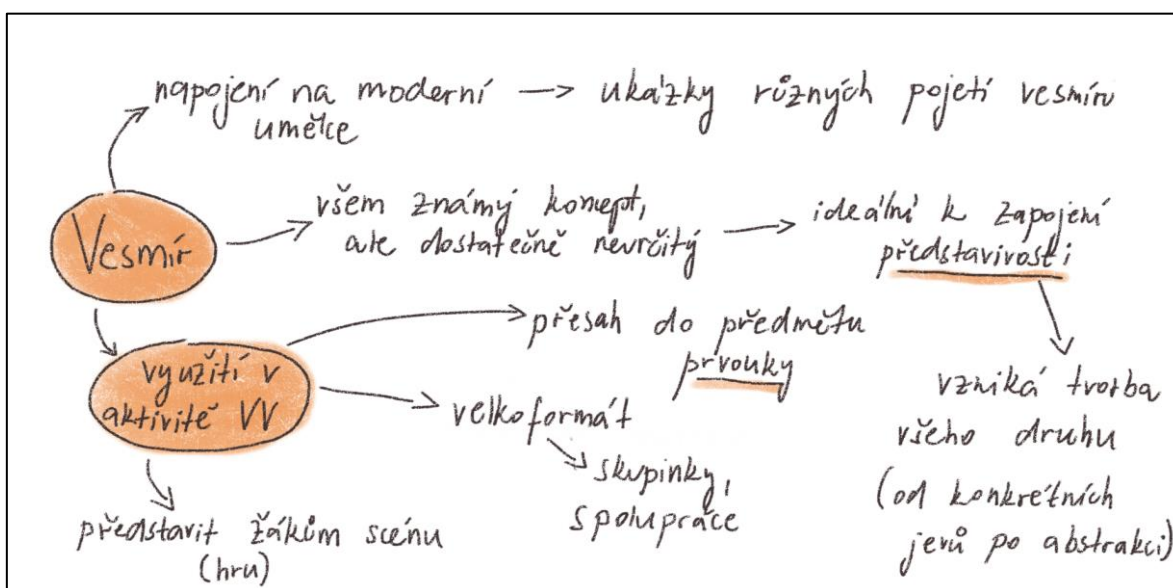 napojení na moderní → ukázky různých pojetí vesmíru
umělce
Vesmír
všem známý koncept,
ale dostatečně neurčitý
ideální k zapojení
představivosti
vzniká tvorba
všeho druhu
(od konkrétních
jevů po abstrakci)
využití v
aktivitě VV
přesah do předmětu
prvouky
velkoformát
skupinky,
spolupráce
představit žákům scénu
(hru)